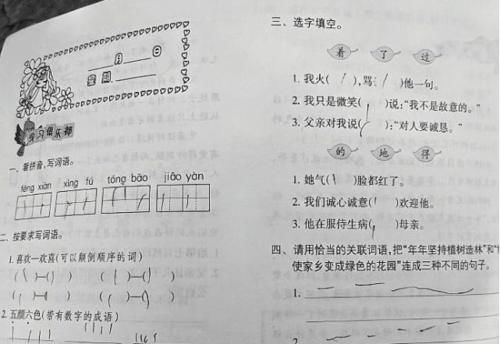 月 日
星期
学习俱乐部
一、看拼音,写词语。
fèng xiàn xìng fú tóng bāo jiāo yàn
二、按要求写词语。
1.喜欢—欢喜(可以颠倒顺序的词)
( )—( ) ( )—( )
( )—( ) ( )—( )
2.五颜六色(带有数字的成语)
三、选字填空。
着 了 过
1.我火( ),骂( )他一句。
2.我只是微笑( )说:“我不是故意的。”
3.父亲对我说( ):“对人要诚恳。”
的 地 得
1.她气( )脸都红了。
2.我们诚心诚意( )欢迎他。
3.他在服侍生病( )母亲。
四、请用恰当的关联词语,把“年年坚持植树造林”和“
使家乡变成绿色的花园”连成三种不同的句子。
1.
2.